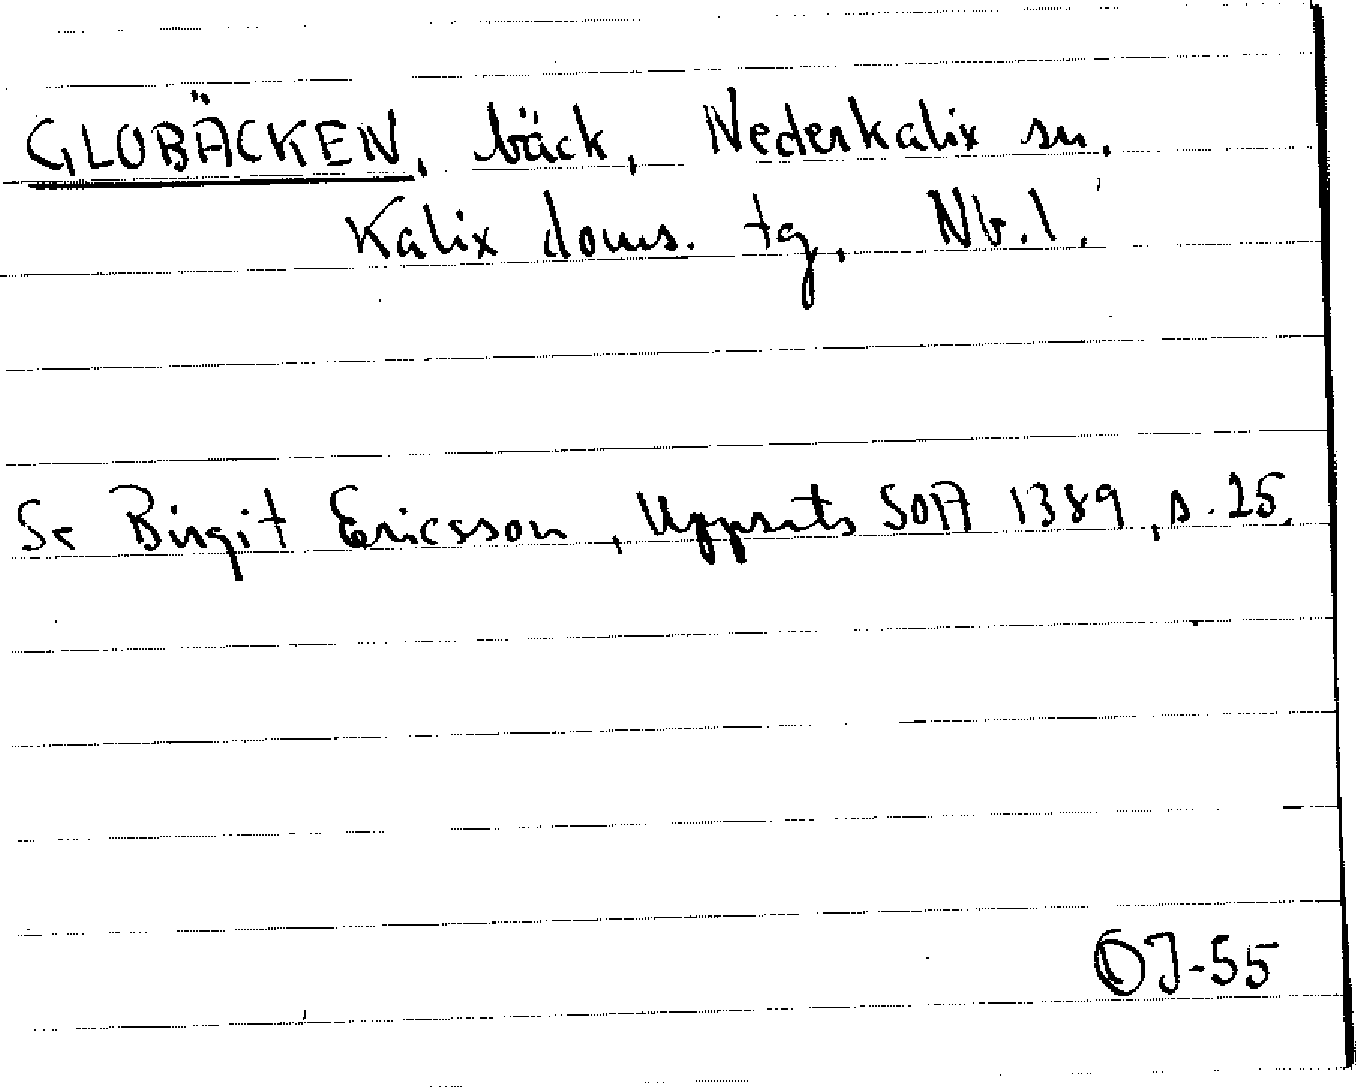 GLOBÄCKEN, bäck, Nederkalix sn.
Kalix doms. tg. Nb.l.
Se Birgit Ericsson, Uppsats SOA 1389, s. 25.
OJ-55